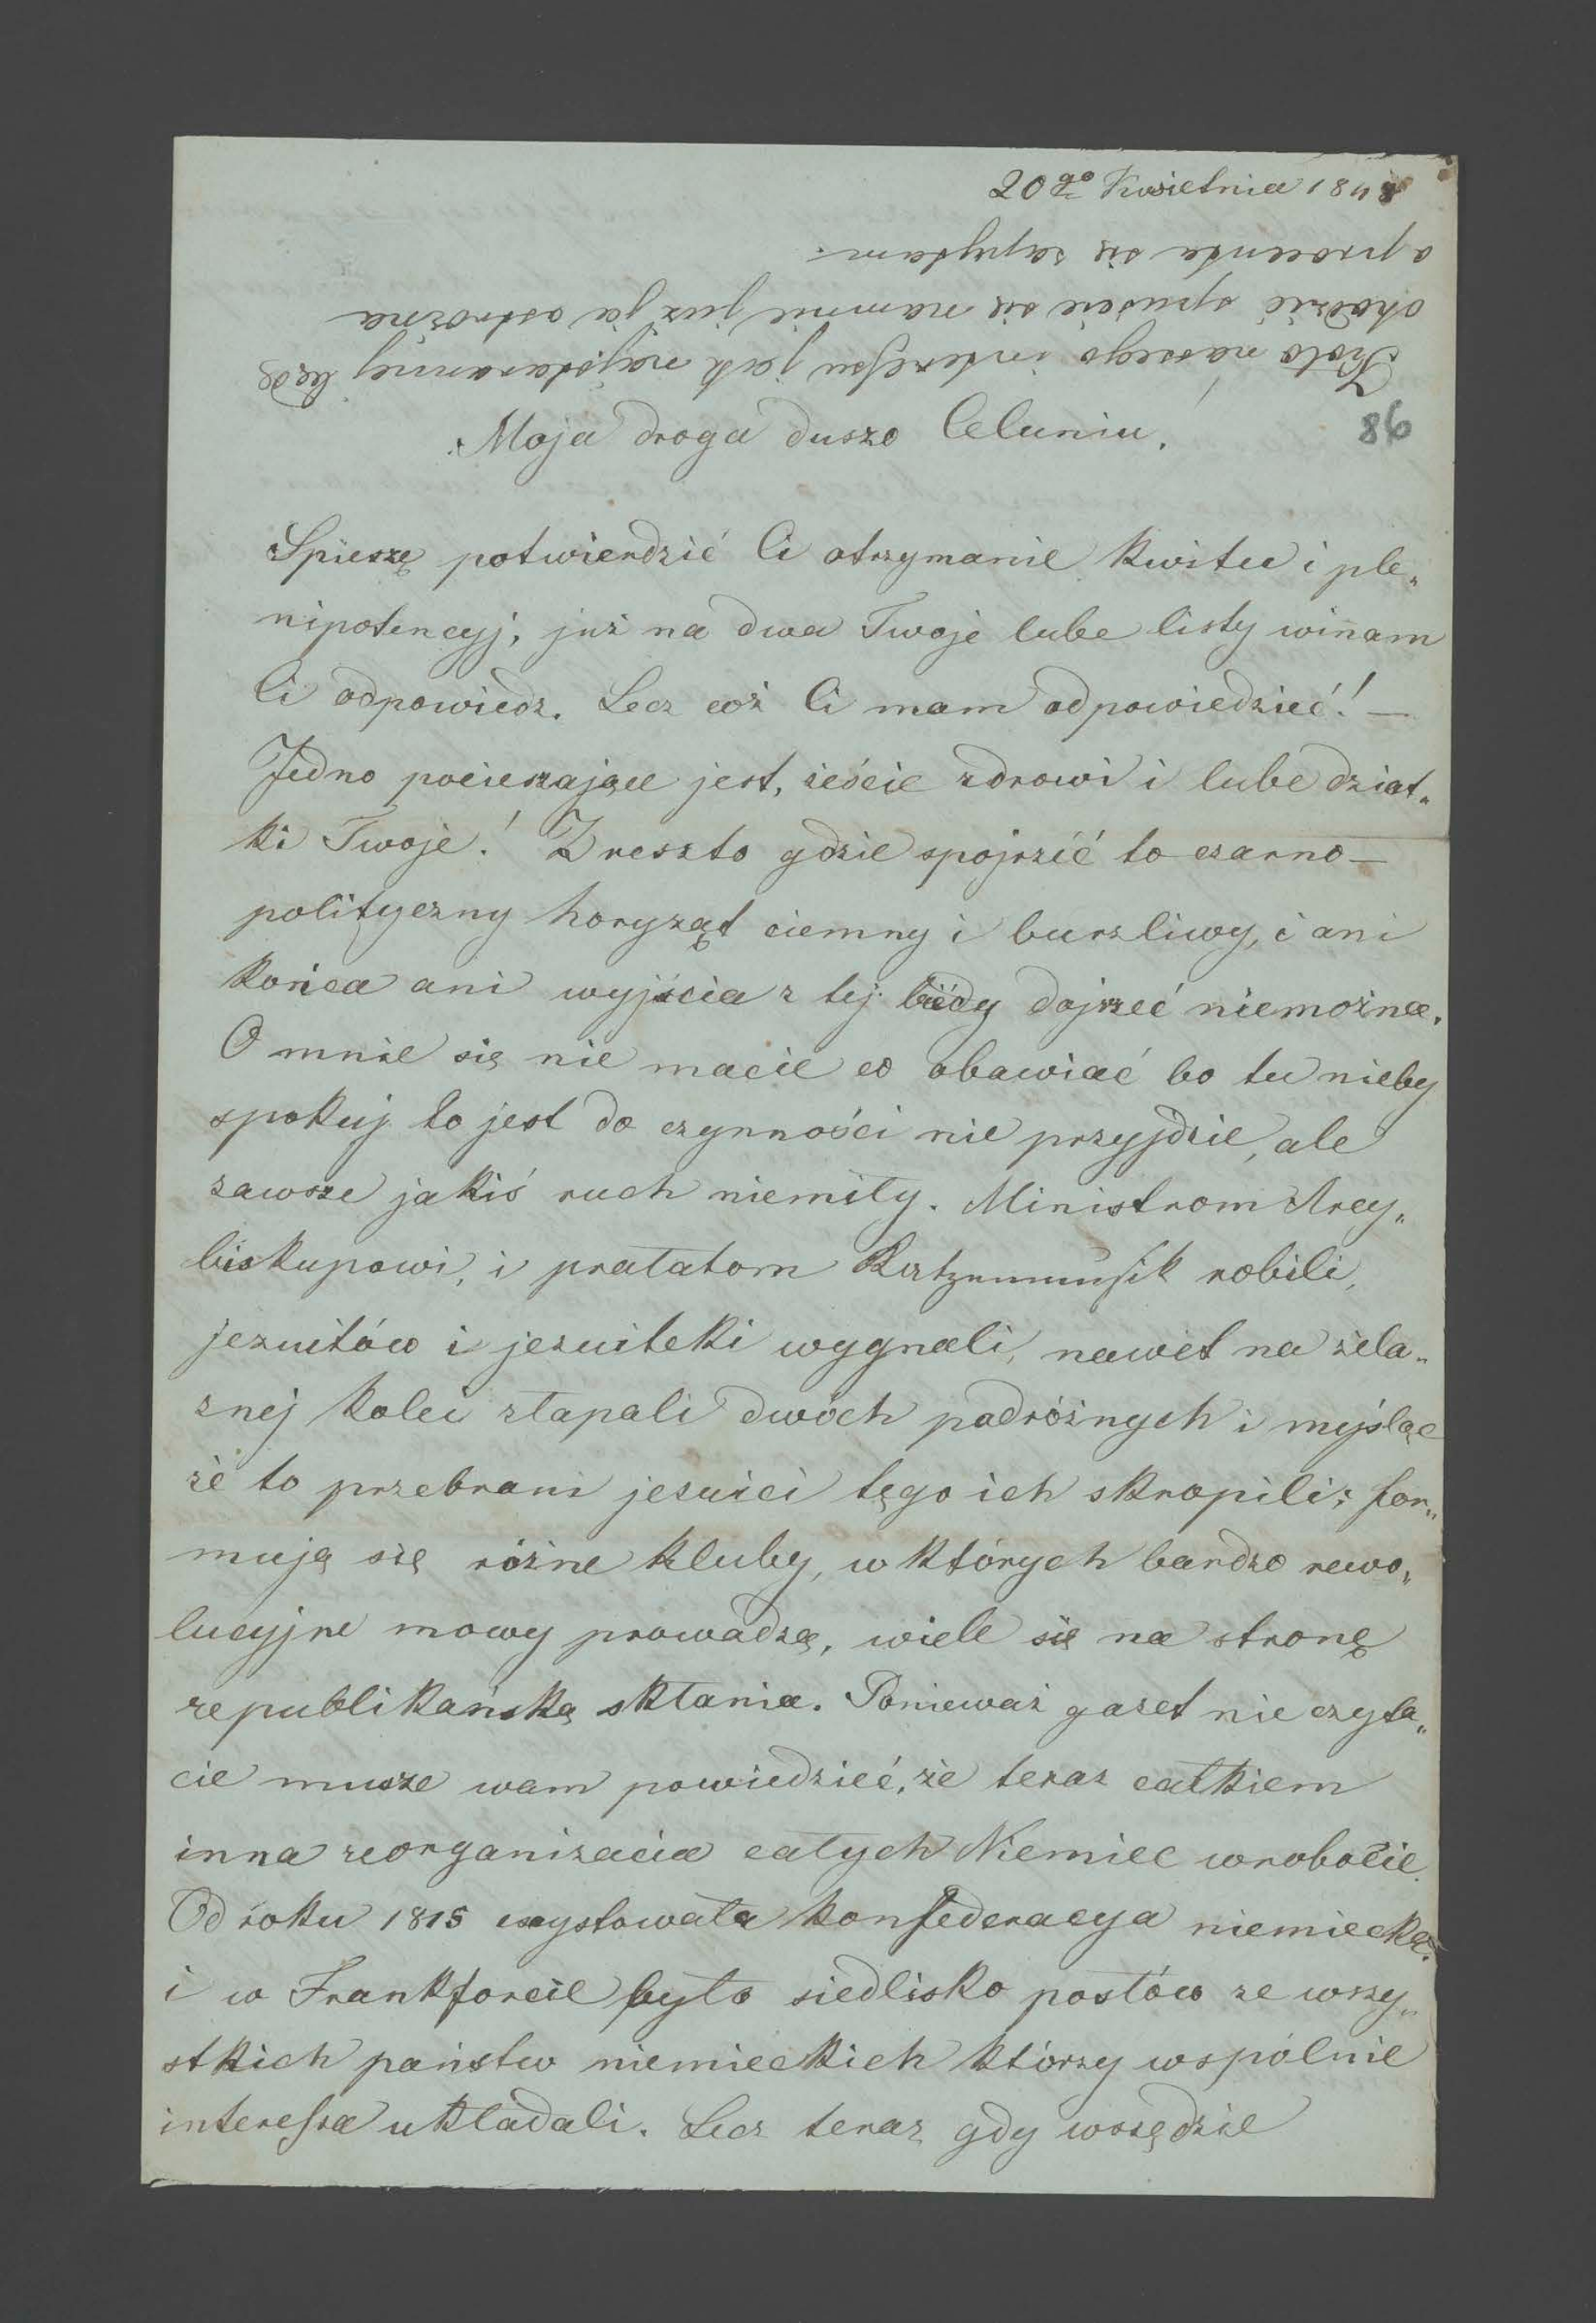 20go Kwietnia 1848
Koło naszego interessu jak najstaranniej będę
chodzić spuście się namnie już ja ostrożna
a procenta się zapytam.
86
Moja droga duszo Celuniu!
Spieszę potwierdzić Ci otrzymanie kwitu i ple„
nipotencyj, już na dwa Twoje lube listy winam
Ci odpowiedz. Lecz cóż Ci mam odpowiedzieć! —
Jedno pocieszające jest, żeście zdrowi i lube dziat„
ki Twoje! Zreszto gdzie spojrzić to czarno —
polityczny horyząt ciemny i burzliwy, i ani
końca ani wyjścia z tej biédy dojrzeć niemożna.
O mnie się nie macie co obawiać bo tu nieby
spokuj to jest do czynności nie przyjdzie, ale
zawsze jakiś ruch niemiły. Ministrom Arcy„
biskupowi, i prałatom Katzenmusik robili,
jezuitów i jezuitki wygnali, nawet na żela„
znej kolei złapali dwóch podróżnych i myśląc
że to przebrani jesuici tęgo ich skropili; for„
mują się różne kluby, w których bardzo rewo„
lucyjne mowy prowadzą, wiele się na stronę
republikańską skłania. Ponieważ gazet nie czyta„
cie musze wam powiedzieć, że teraz całkiem
inna reorganizacia całych Niemiec wrobocie.
Od roku 1815 exystowała konfederacya niemiecka.
i w Frankforcie było siedlisko posłów ze wszy„
stkich państw niemieckich którzy wspólnie
interessa układali. Lecz teraz gdy wszędzie